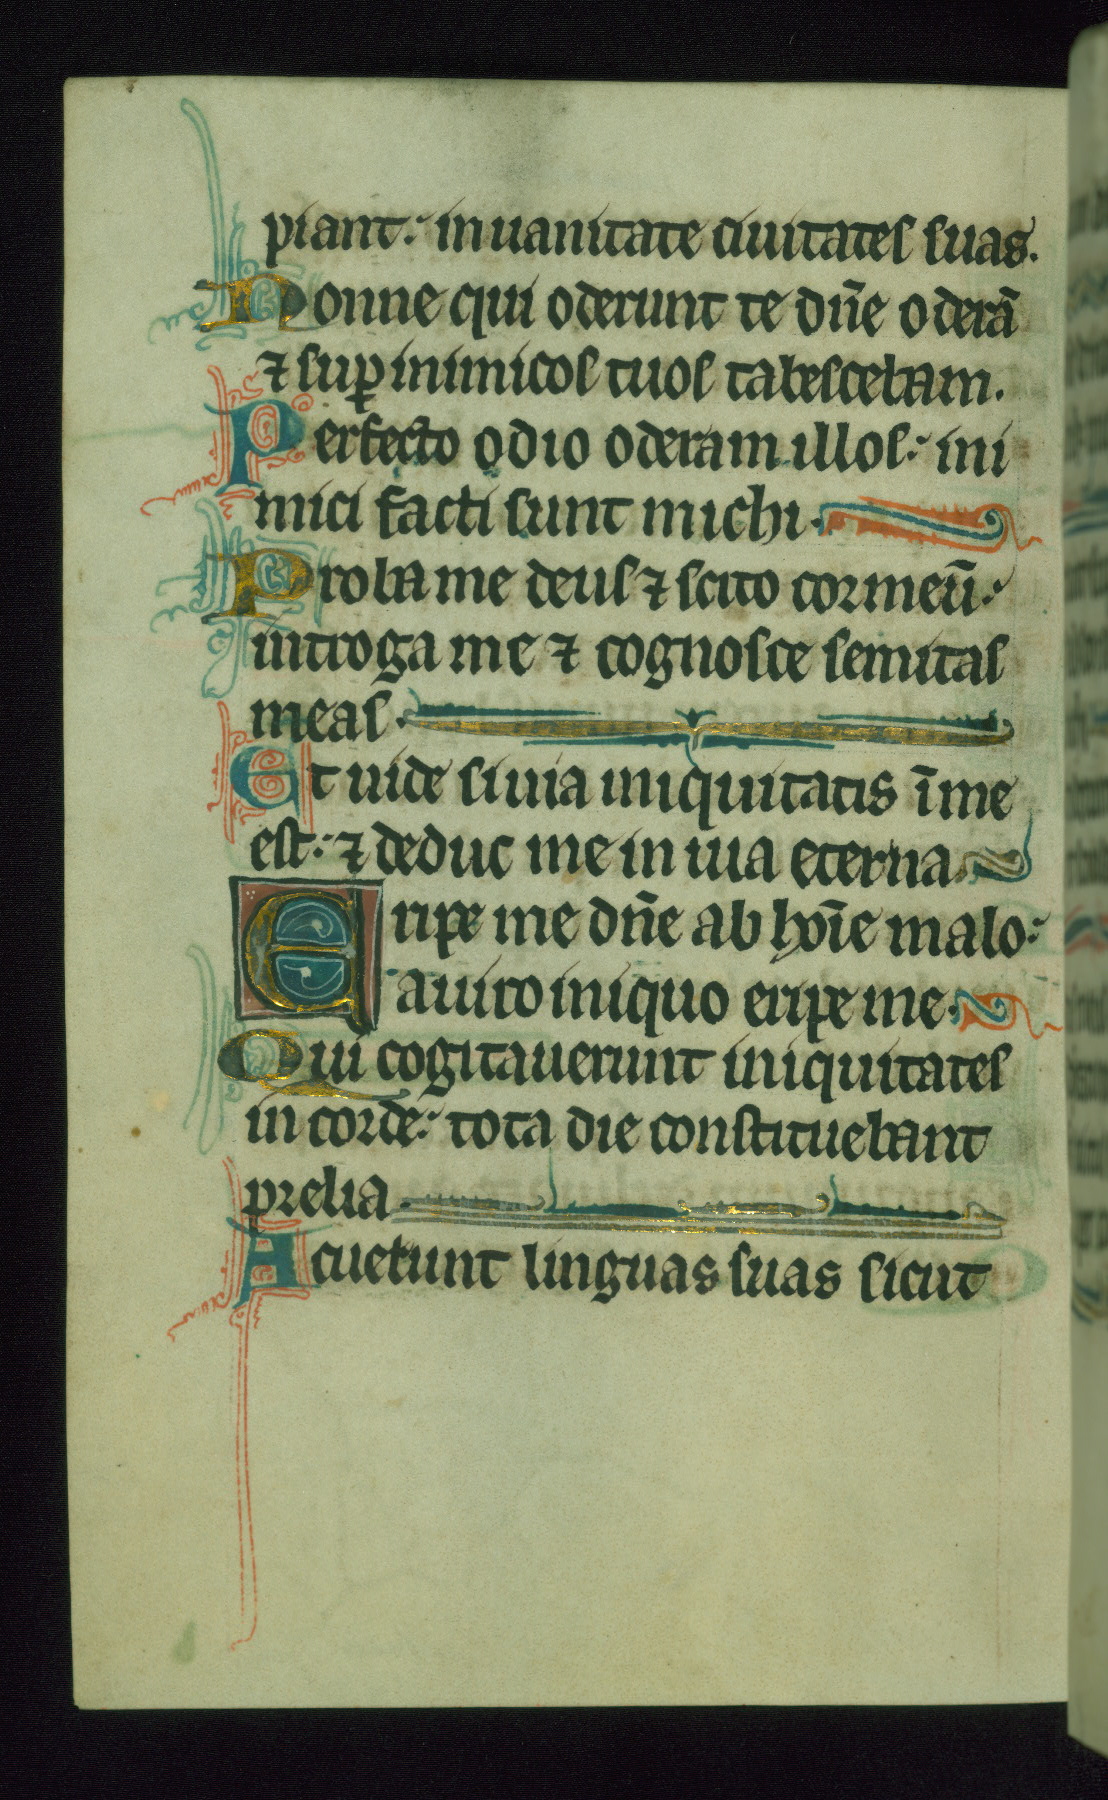 piant: in uanitate ciuitates suas.
Nonne qui oderunt te dn̄e oderā
⁊ suꝑ inimicos tuos tabescebam.
Perfecto odio oderam illos: ini
mici facti sunt michi.
Proba me deus ⁊ scito cor meū:
int̾roga me ⁊ cognosce semitas
meas.
Et uide si uia iniquitatis ī me
est: ⁊ deduc me in uia eterna.
Eripe me dn̄e ab hoīe malo:
a uiro iniquo eripe me.
Qui cogitauerunt iniquitates
in corde: tota die constituebant
prelia.
Acuerunt linguas suas sicut